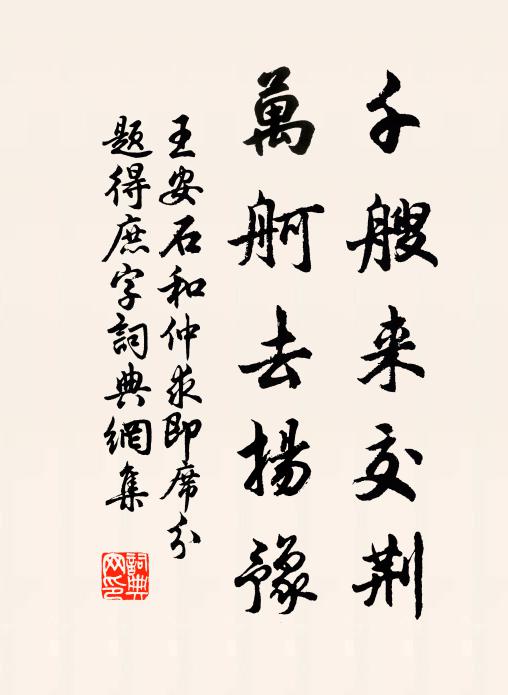 千艘来交荆
萬舸去揚豫
王安石和仲求即席分
题得庶字詞典網集
詞典
网印